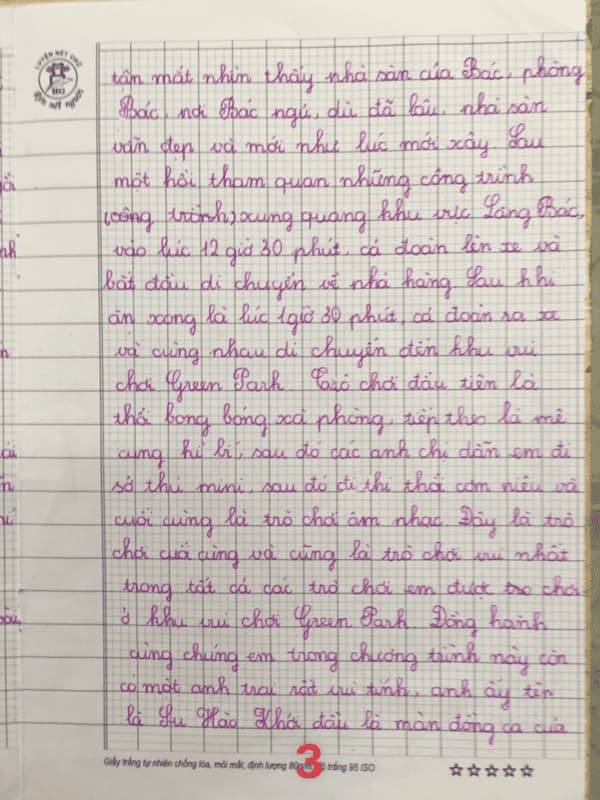 LUYỆN NÉT CHỮ
RÈN NẾT NGƯỜI
tận mắt nhìn thấy nhà sàn của Bác, phòng
Bác, nơi Bác ngủ, dù đã lâu, nhà sàn
vẫn đẹp và mới như lúc mới xây. Sau
một hồi tham quan những công trình
(công trình) xung quang khu vực Lăng Bác,
vào lúc 12 giờ 30 phút, cả đoàn lên xe và
bắt đầu di chuyển về nhà hàng Sau khi
ăn xong là lúc 1 giờ 30 phút, cả đoàn ra xe
và cùng nhau di chuyển đến khu vui
chơi Green Park. Trò chơi đầu tiên là
thổi bong bóng xà phòng, tiếp theo là mê
cung kì bí, sau đó các anh chị dẫn em đi
sở thú mini, sau đó đi thi thổi cơm niêu và
cuối cùng là trò chơi âm nhạc. Đây là trò
chơi cuố cùng và cũng là trò chơi vui nhất
trong tất cả các trò chơi em được chơi
ở khu vui chơi Green Park. Đồng hành
cùng chúng em trong chương trình này còn
có một anh trai rất vui tính, anh ấy tên
là Lu Hào Khởi đầu là màn đồng ca của
3
Giấy trắng tự nhiên chống lóa, mỏi mắt, định lượng trắng 95 ISO